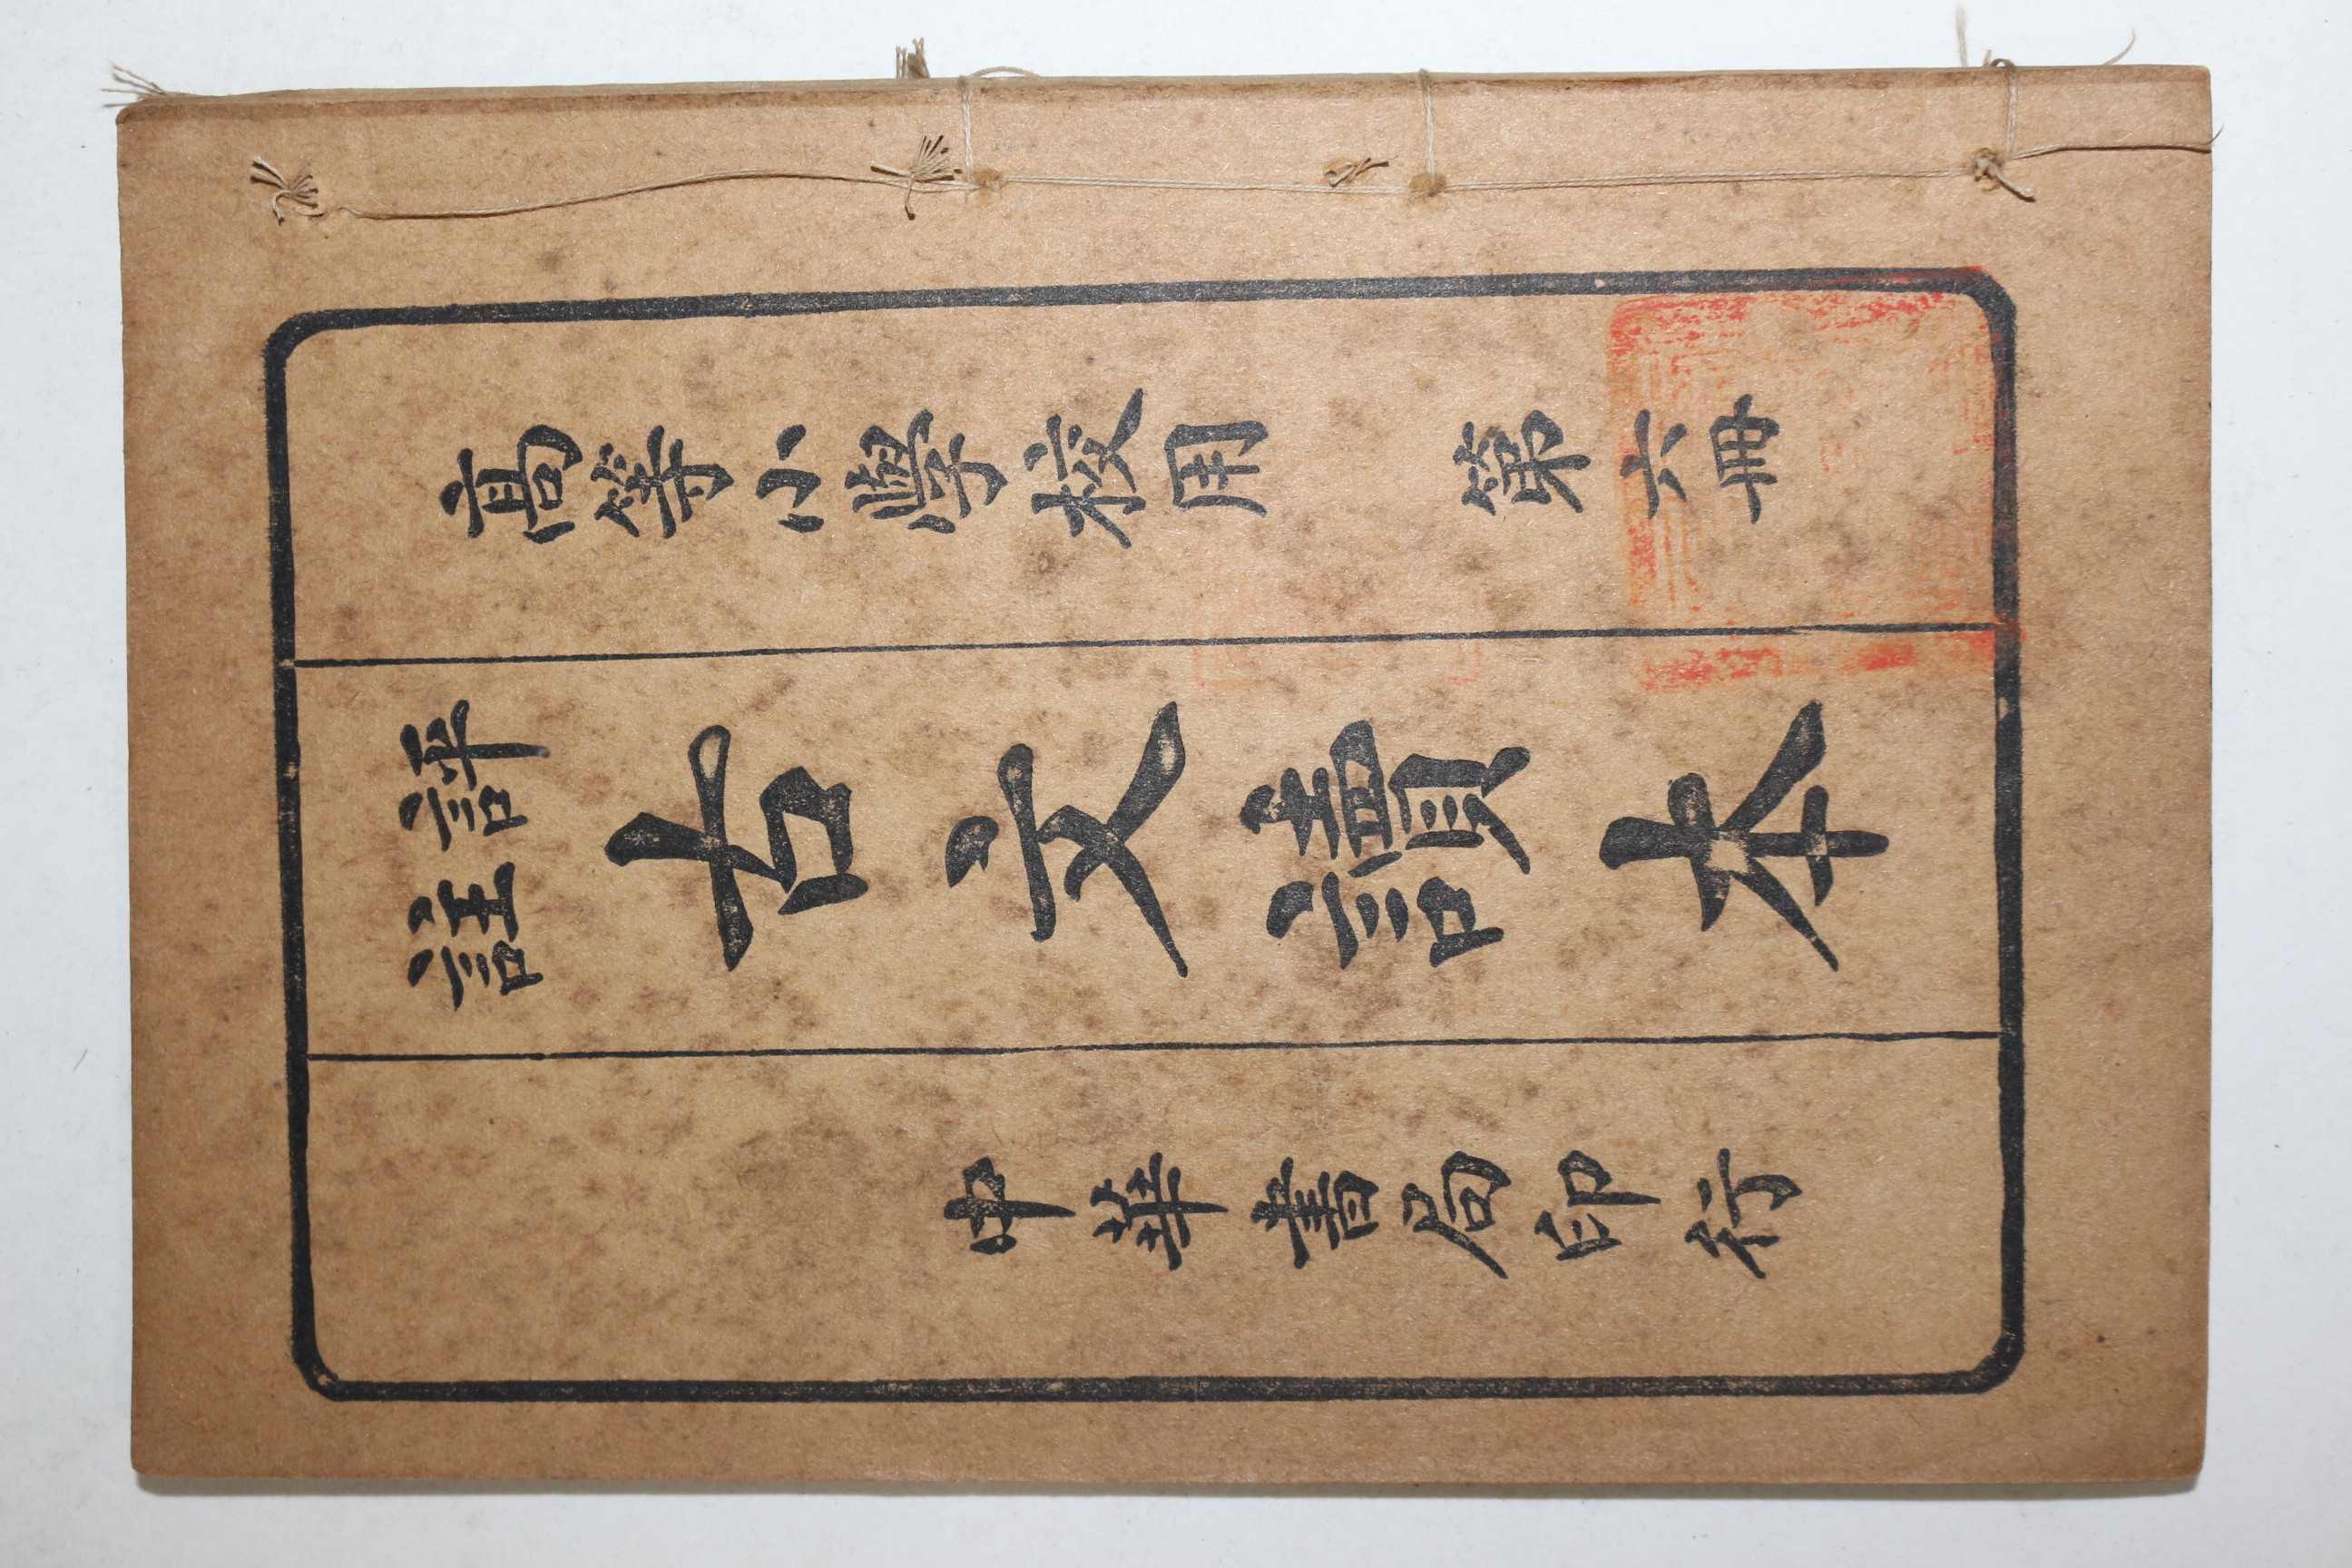 高等小學校用 第六冊
評註古文讀本
中華書局印行